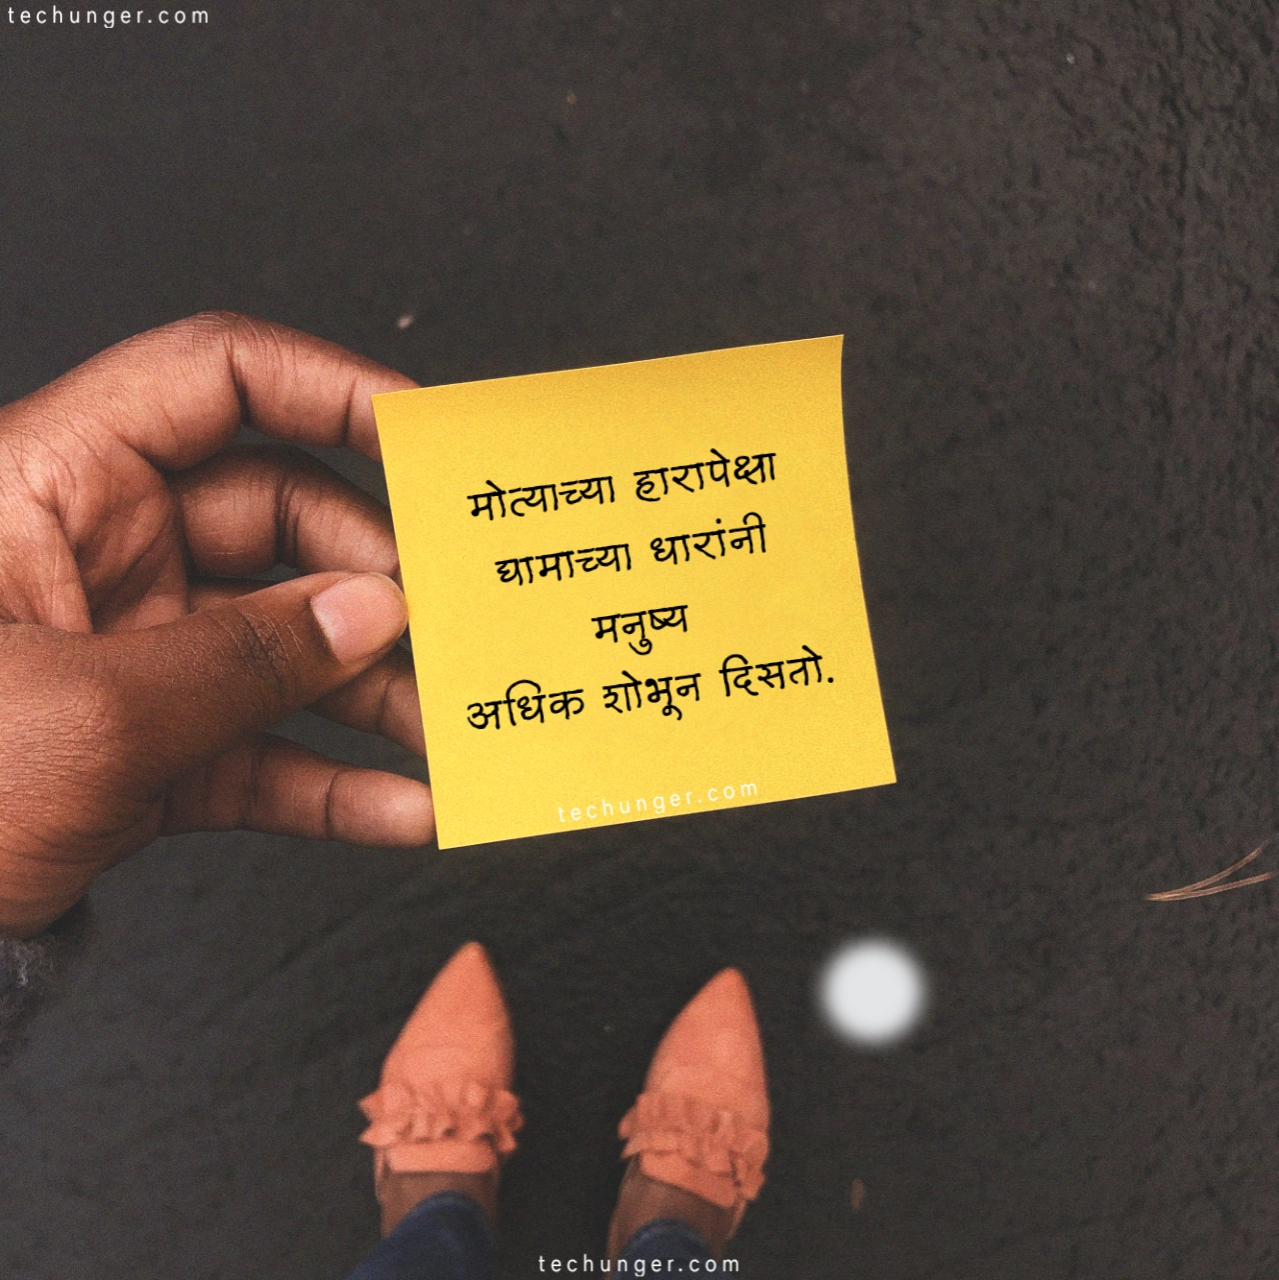 techunger.com
मोत्याच्या हारापेक्षा
घामाच्या धारांनी
मनुष्य
अधिक शोभून दिसतो.
techunger.com
techunger.com